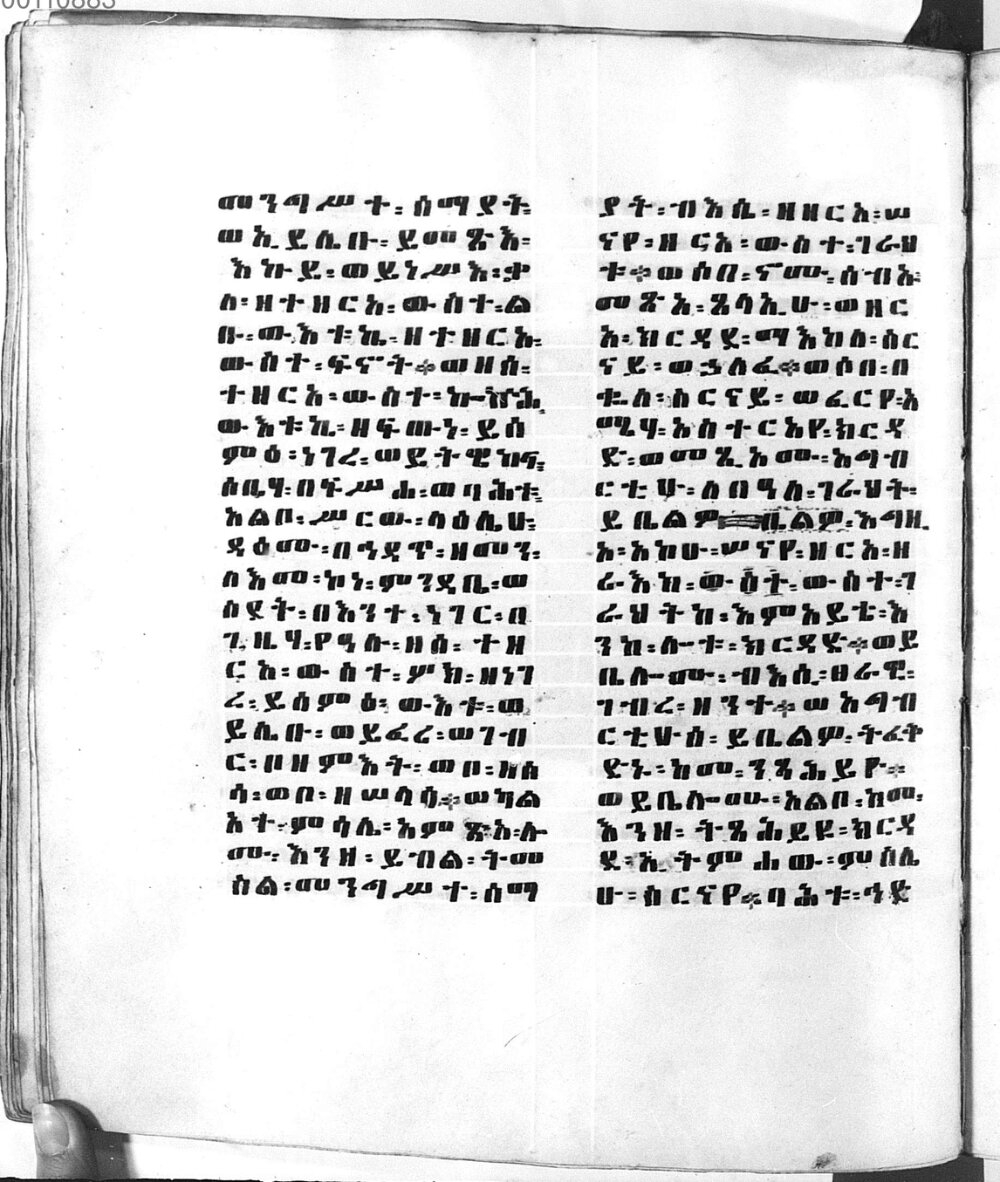 መንግሥተ፡ሰማያት፡
ወኢይሌቡ፡ይመጽእ፡
እኩይ፡ወይነሥእ፡ቃ
ለ፡ዘተዘርአ፡ውስተ፡ል
ቡ፡ውእቱኬ፡ዘተዘርአ፡
ውስተ፡ፍኖት፨ወዘሰ፡
ተዘርአ፡ውስተ፡ኰኵሕ
ውእቱኬ፡ዘፍውነ፡ይሰ
ምዕ፡ነገረ፡ወይትዌከፍ፡
ሰቤሃ፡በፍሥሐ፡ወባሕቱ፡
አልቦ፡ሥርው፡ላዕሌሁ፡
ዳዕሙ፡በዓዳጥ፡ዘመን፡
ለእመ፡ከነ፡ምንዳቤ፡ወ
ሰደት፡በእንተ፡ነገር፡በ
ጊዜሃ፡የዓሉ፡ዘሰ፡ተዘ
ርአ፡ውስተ፡ሦክ፡ዘነገ
ረ፡ይሰምዕ፡ውእቱ፡ወ
ይሌቡ፡ወይፈረ፡ወገብ
ር፡ቦዘምእት፡ወቦ፡ዘስ
ሳ፡ወቦ፡ዘሠላሳ፨ወካል
አተ፡ምሳሌ፡አምጽአ፡ሎ
ሙ፡እንዘ፡ይብል፡ትመ
ስል፡መንግሥተ፡ሰማ
ያት፡ብእሴ፡ዘዘርአ፡ሠ
ናየ፡ዘርአ፡ውስተ፡ገራህ
ቱ፨ወሶበ፡ኖሙ፡ሰብኡ
መጽአ፡ጸላኢሁ፡ወዘር
አ፡ክርዳደ፡ማእከለ፡ስር
ናይ፡ወኃለፈ፨ወሶበ፡በ
ቈለ፡ስርናይ፡ወፈርየ፡አ
ሜሃ፡አስተርአየ፡ክርዳ
ድ፡ወመጺአሙ፡አግብ
ርቲሁ፡ለበዓለ፡ገራህት፡
ይቤልዎ ቤልዎ፡እግዚ
አ፡አከሁ፡ሠናየ፡ዘርአ፡ዘ
ራእከ፡ውስተ፡ውስተ፡ገ
ራህትከ፡እምአይቴ፡እ
ንከ፡ሎቱ፡ክርዳድ፨ወይ
ቤሎሙ፡ብእሲ፡ፀራዊ፡
ገብረ፡ዘንተ፨ወአግብ
ርቲሁሰ፡ይቤልዎ፡ትፈቅ
ድኑ፡ከመ፡ንጻሕይዮ፨
ወይቤሎሙ፡አልቦ፡ከመ፡
እንዘ፡ትጼሕይዩ፡ክርዳ
ደ፡ኢትምሐው፡ምስሌ
ሁ፡ስርናየ፨ባሕቱ፡ኅድ